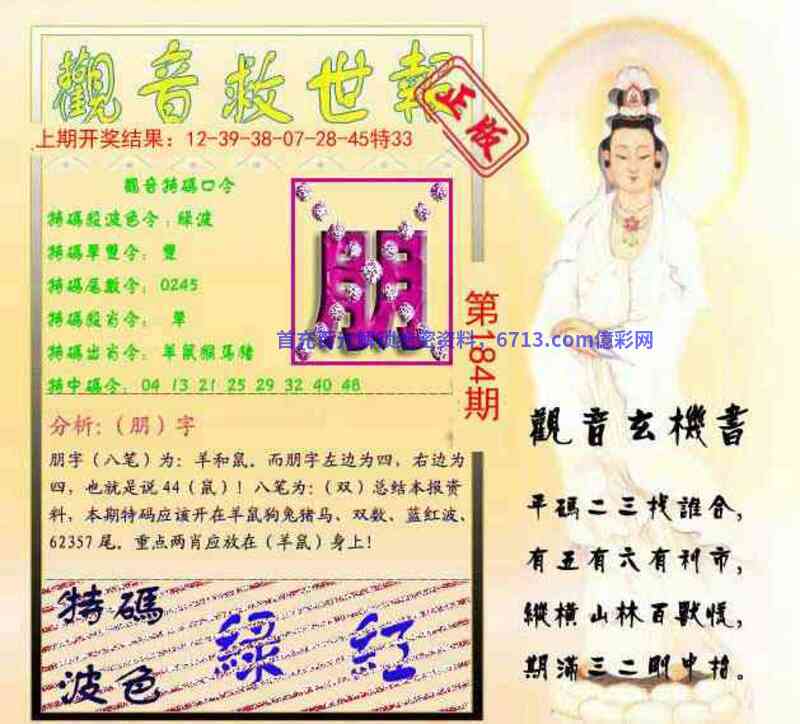 觀音救世報
正版
上期开奖结果：12-39-38-07-28-45特33
觀音特碼口令
特碼殺波色令：綠波
特碼單雙令：雙
特碼尾數令：0245
特碼殺肖令：單
特碼出肖令：羊鼠猴馬豬
特中碼令：04 13 21 25 29 32 40 48
朋
首充 资料，6713.com億彩网
第184期
分析:（朋）字
朋字（八笔）为：羊和鼠。而朋字左边为四，右边为
四，也就是说44（鼠）！八笔为：（双）总结本报资
料，本期特码应该开在羊鼠狗兔猪马、双数、蓝红波、
62357尾。重点两肖应放在（羊鼠）身上！
特碼
波色
綠 紅
觀音玄機書
平碼二三找誰合，
有五有六有利市，
縱橫山林百獸慌，
期滿三二剛中指。